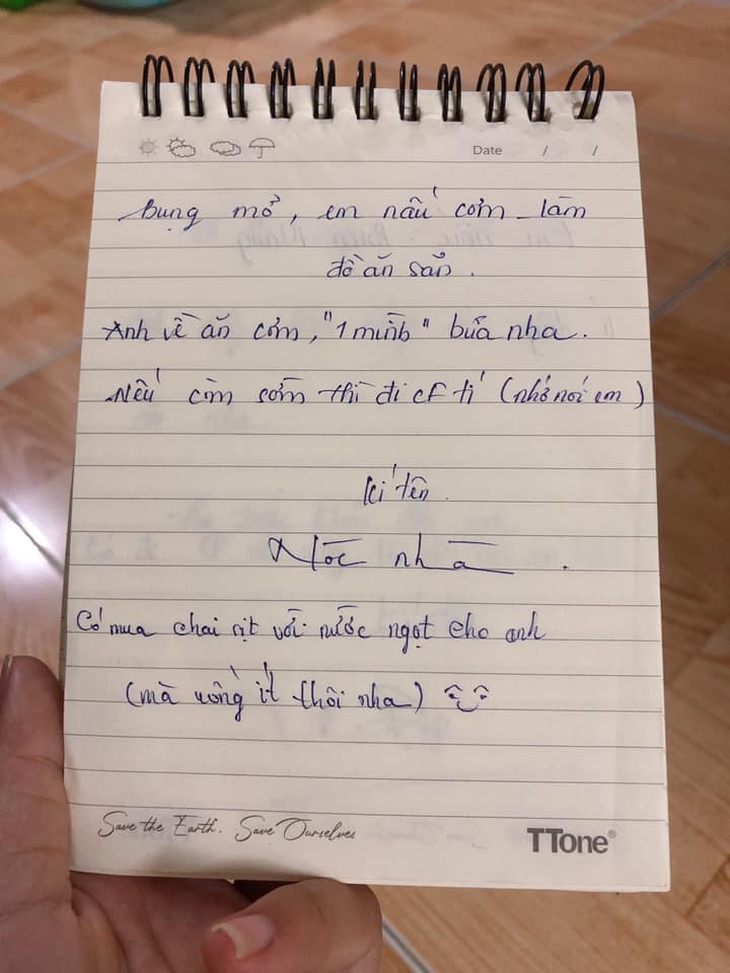 Date / /
bụng mỡ, em nấu cơm làm
đồ ăn sẵn.
Anh về ăn cơm, "1 mình" bữa nha.
Nếu còn sớm thì đi cf tí (nhớ nói em)
kí tên.
Nóc nhà.
Có mua chai rịt với nước ngọt cho anh
(mà uống ít thôi nha)
Save the Earth. Save Ourselves
TTone®